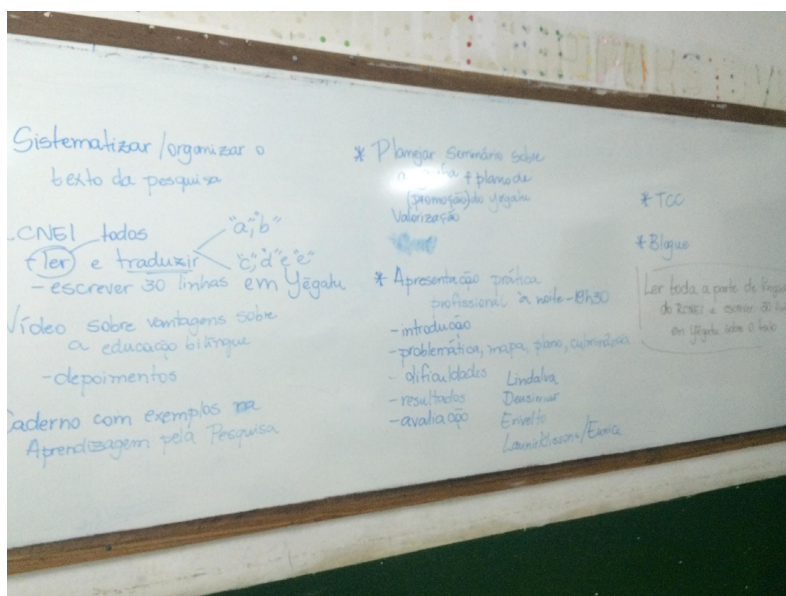 Sistematizar/organizar o
texto da pesquisa
CNEI todos
ler e traduzir
"a", "b"
"c", "d" e "e"
- escrever 30 linhas em Yẽgatu
Vídeo sobre vantagens sobre
a educação bilíngue
- depoimentos
Caderno com exemplos na
Aprendizagem pela Pesquisa
* Planejar seminário sobre
+ plano de
(promoção) do yẽgatu
Valorização
* Apresentação prática
profissional à noite - 18h30
- introdução
- problemática, mapa, plano, culminância
- dificuldades
- resultados
- avaliação
Lindalva
Deusimar
Erivelto
/Eunice
* TCC
* Blogue
Ler toda a parte de língua
do RCNEI e escrever 30
em yẽgatu sobre o texto